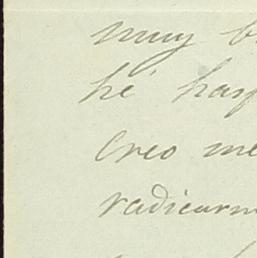 muy b
he has
Creo me
radicarm